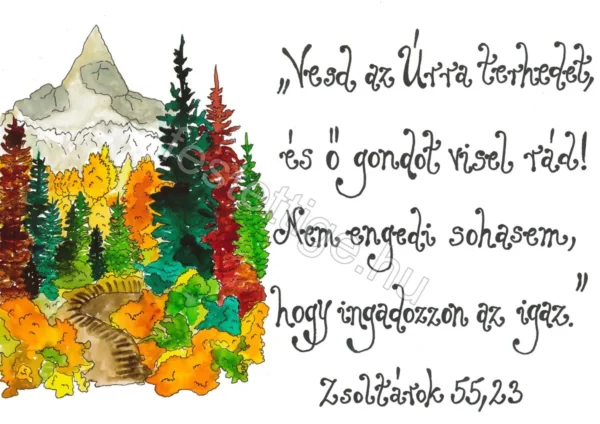 „Vesd az Úrra terhedet,
és ő gondot visel rád!
Nem engedi sohasem,
hogy ingadozzon az igaz.”
Zsoltárok 55,23